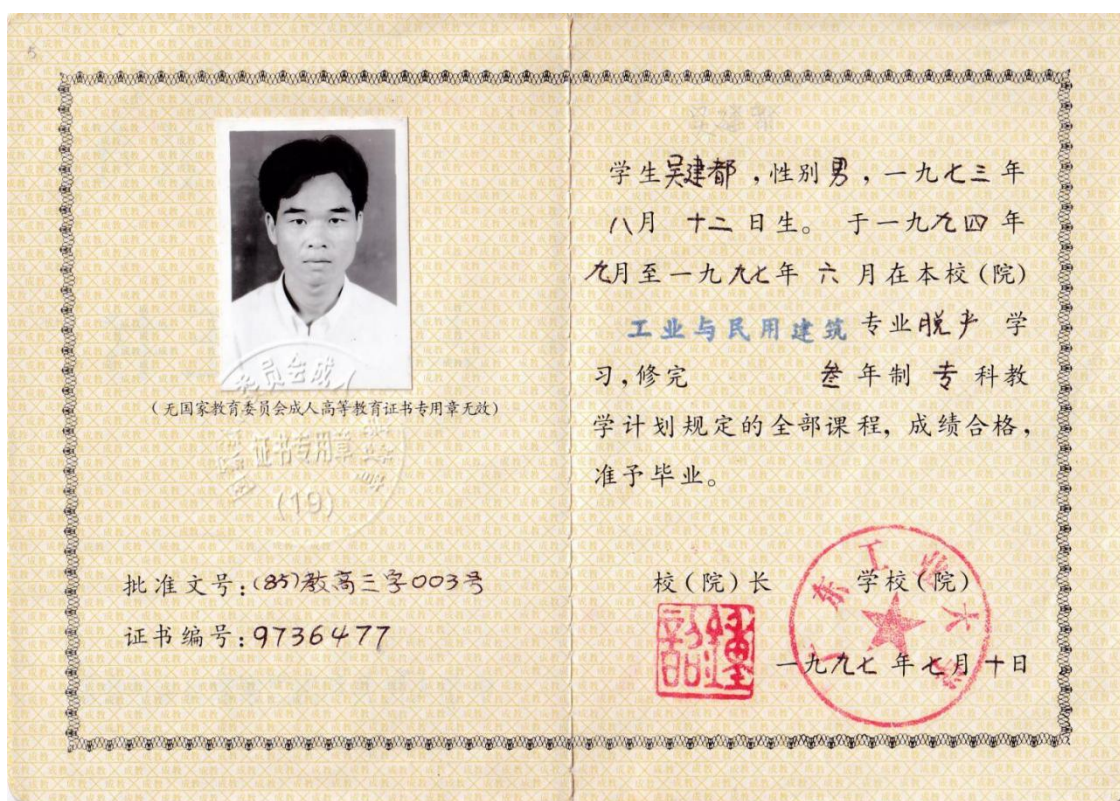 员会成人
(无国家教育委员会成人高等教育证书专用章无效)
证书专用章
(19)
批准文号:(85)教高三字003号
证书编号:9736477
学生吴建都,性别男,一九七三年
八月 十二 日生。 于一九九四年
九月至一九九七年 六 月在本校(院)
工业与民用建筑 专业脱产 学
习,修完 叁 年制 专 科教
学计划规定的全部课程,成绩合格,
准予毕业。
校(院)长 学校(院)
广东工业大学
一九九七 年七月十日